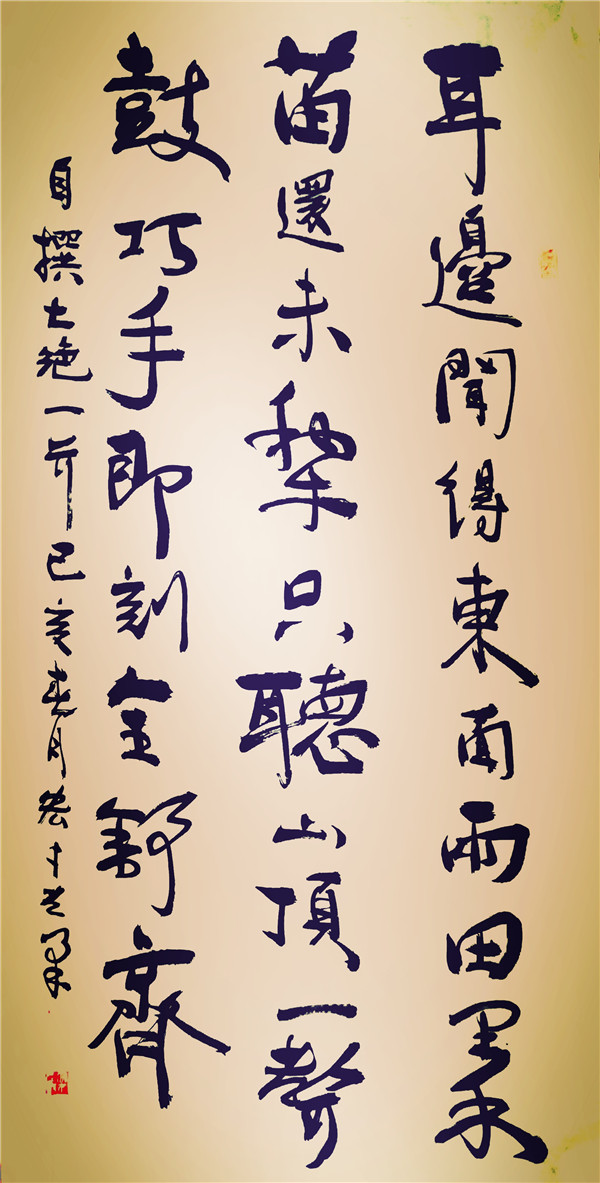 耳邊聞得東南雨田里禾
苗還未犁只聽山頂一聲
鼓巧手即刻全舒齊
自撰七絶一首己亥春月